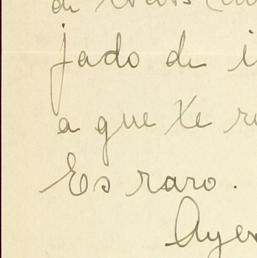 de
jado de i
a que te r
Es raro.
Ayer